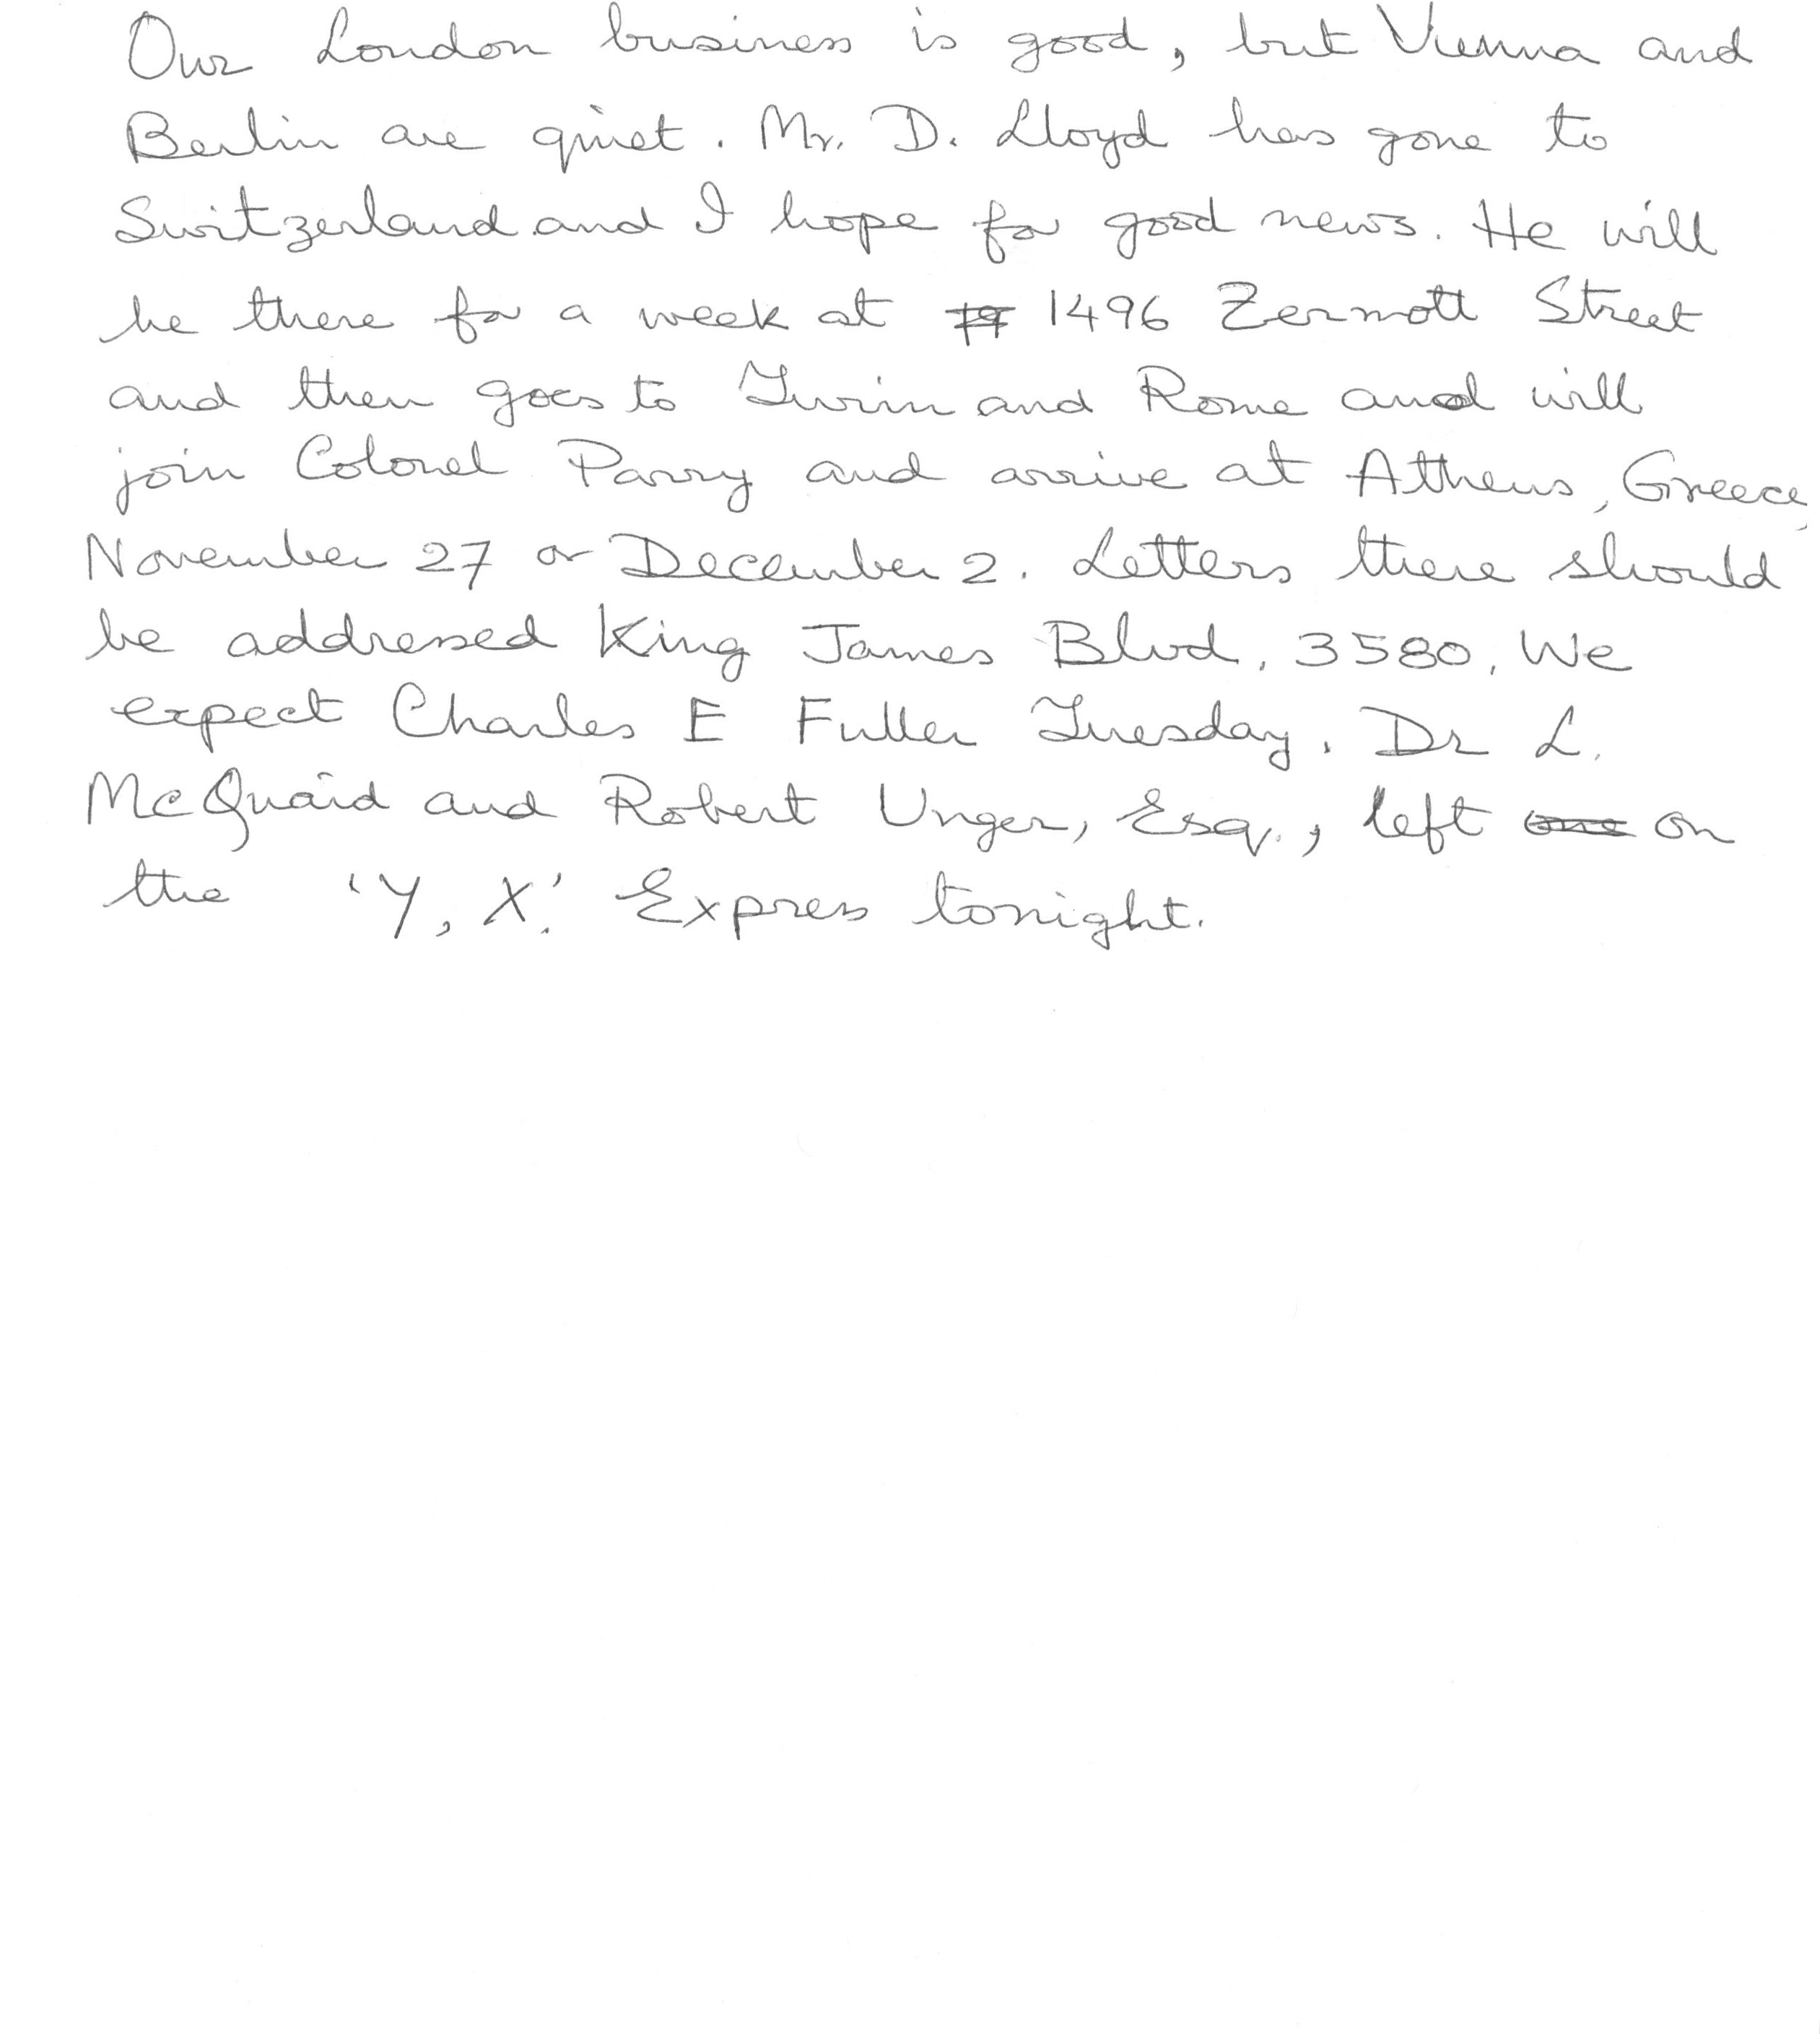 Our London business is good, but Vienna and
Berlin are quiet. Mr. D. Lloyd has gone to
Switzerland and I hope for good news. He will
be there for a week at 1496 Zermott Street
and then goes to Turin and Rome and will
join Colonel Parry and arrive at Athens, Greece,
November 27 or December 2. Letters there should
be addressed King James Blvd. 3580. We
expect Charles E Fuller Tuesday. Dr L.
McQuaid and Robert Unger, Esq., left on
the 'Y, X.' Express tonight.